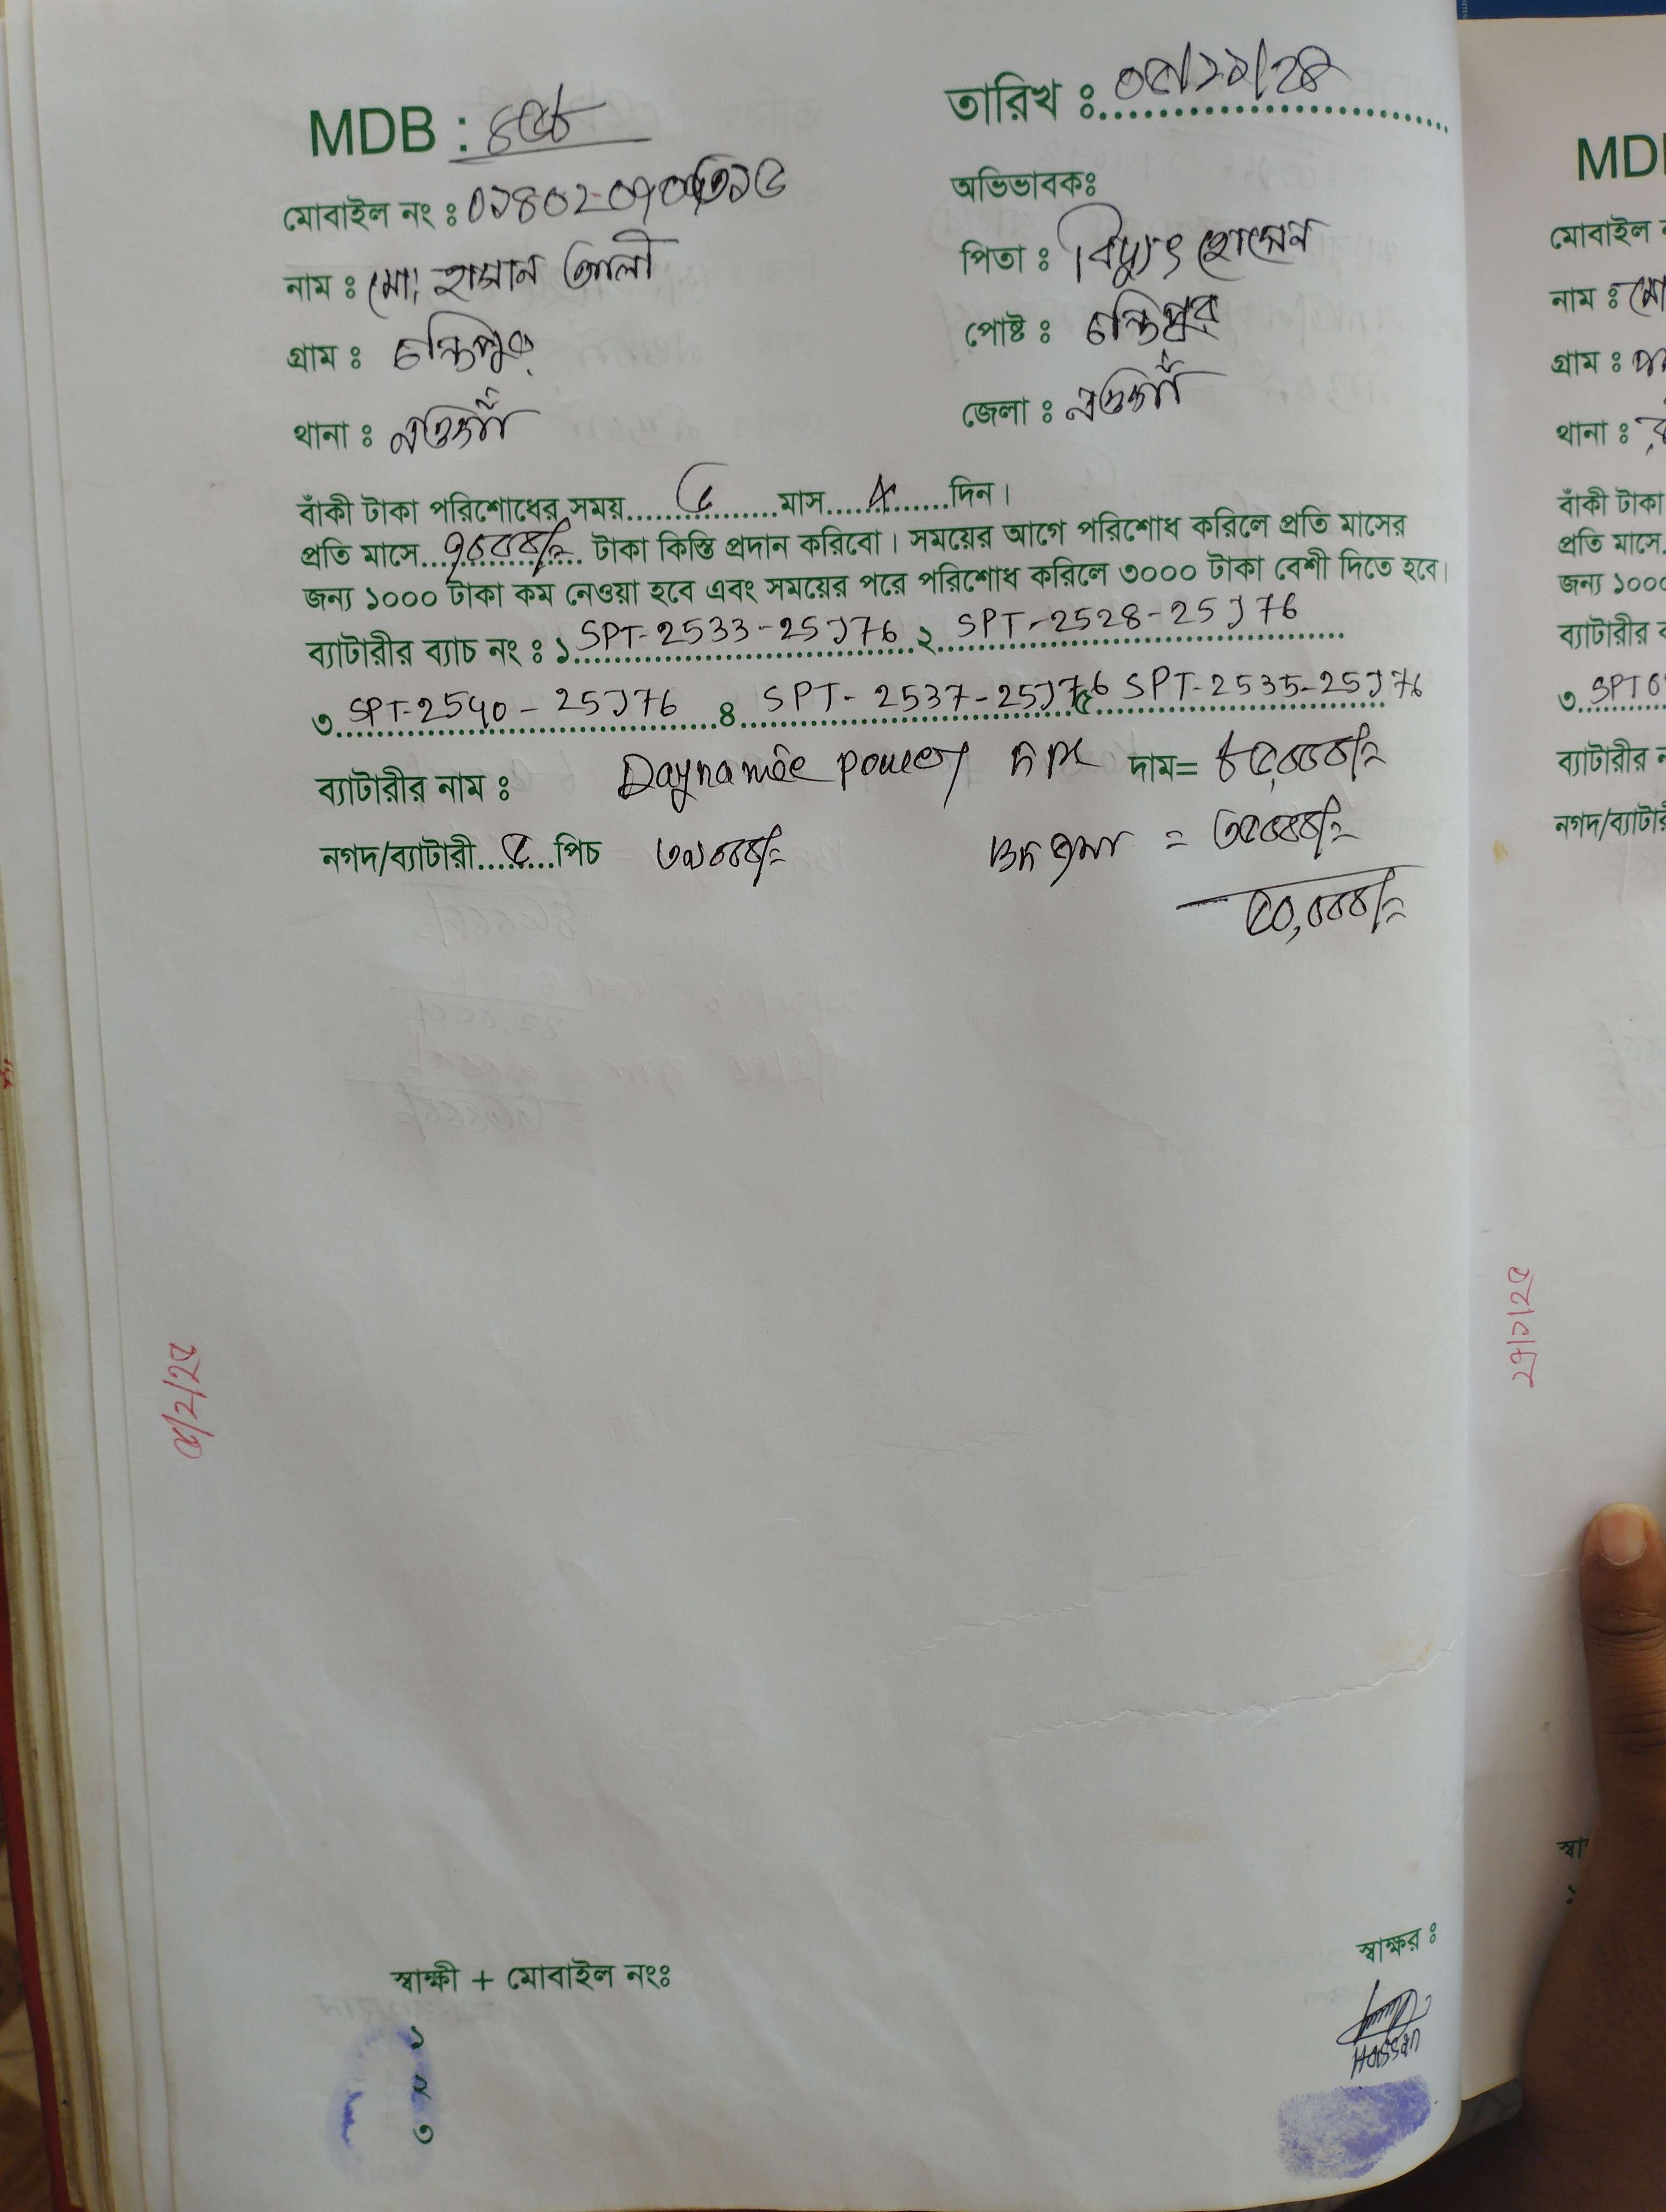 তারিখ ঃ ০৫/১১/২৪
MDB :
মোবাইল নং ঃ
অভিভাবকঃ
নাম ঃ মো: হাসান আলী
পিতা ঃ বিদ্যুৎ হোসেন
গ্রাম ঃ চন্ডিপুর
পোষ্ট ঃ চন্ডিপুর
থানা ঃ নওগাঁ
জেলা ঃ নওগাঁ
বাঁকী টাকা পরিশোধের সময়...............মাস............দিন।
প্রতি মাসে ৭০০০/= টাকা কিস্তি প্রদান করিবো। সময়ের আগে পরিশোধ করিলে প্রতি মাসের
জন্য ১০০০ টাকা কম নেওয়া হবে এবং সময়ের পরে পরিশোধ করিলে ৩০০০ টাকা বেশী দিতে হবে।
ব্যাটারীর ব্যাচ নং ঃ ১ SPT-2533-25J76 ২ SPT-2528-25J76
৩ SPT-2540-25J76 ৪ SPT-2537-25J76 ৫ SPT-2535-25J76
ব্যাটারীর নাম ঃ Daynamic power দাম= ৮৫,০০০/=
নগদ/ব্যাটারী ৫ পিচ ৩১০০০/= জমা = ৩৫০০০/=
৫০,০০০/=
৫/২/২৫
স্বাক্ষী + মোবাইল নংঃ
১
২
৩
স্বাক্ষর ঃ
Hassan
MD
মোবাইল
নাম ঃ মো
গ্রাম ঃ
থানা ঃ
বাঁকী টাকা
প্রতি মাসে
জন্য ১০০০
ব্যাটারীর
৩
ব্যাটারীর
নগদ/ব্যাটারী
২৭/১/২৫